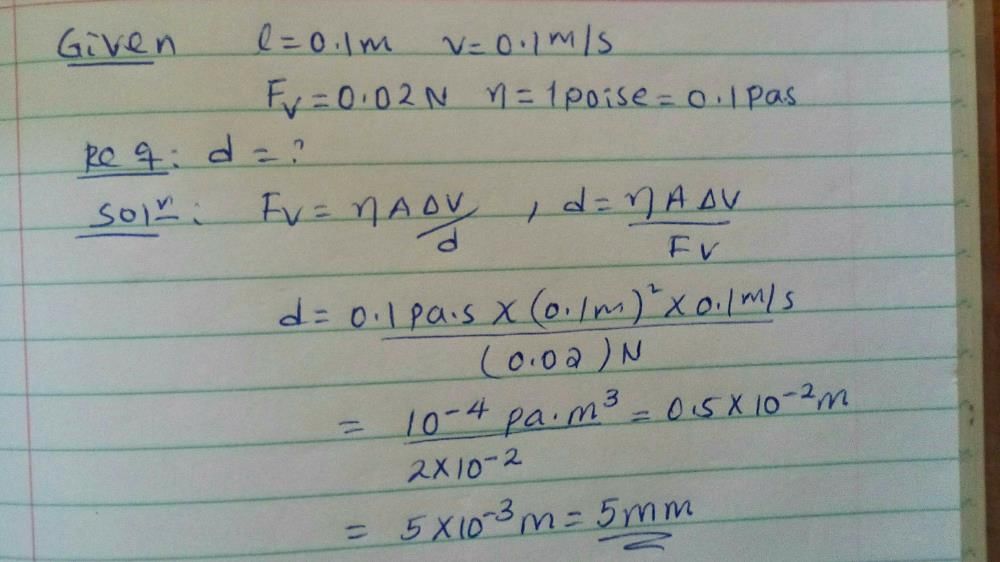 Given l=0.1m v=0.1m/s
Fv=0.02N η=1poise=0.1pas
Req: d=?
Solⁿ: Fv=ηAΔV/d, d=ηAΔV/Fv
d=0.1pa.s×(0.1m)²×0.1m/s
(0.02)N
= 10⁻⁴ pa.m³ = 0.5×10⁻²m
2×10⁻²
= 5×10⁻³m=5mm